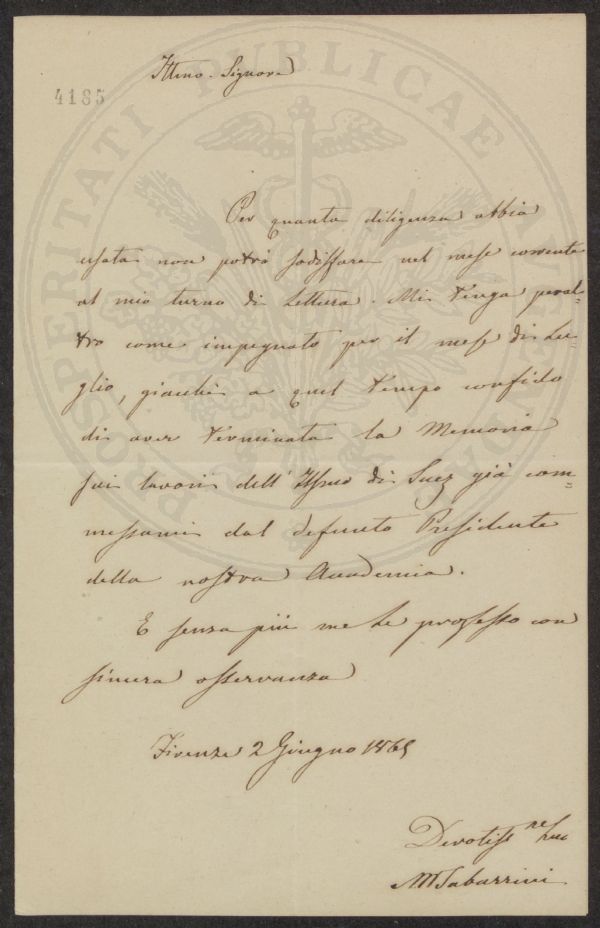 Illmo. Signore
4185
PROSPERITATI PUBLICAE AUGENDAE
Per quanta diligenza abbia
usata non potrò sodisfare nel mese corrente
al mio turno di Lettura. Mi tenga peral=
tro come impegnato per il mese di Lu=
glio, giacchè a quel tempo confido
di aver terminata la Memoria
sui lavori dell'Istmo di Suez già com=
messami dal defunto Presidente
della nostra Accademia.
E senza più me Le professo con
sincera osservanza
Firenze 2 Giugno 1865
Devotiss.
MTabarrini